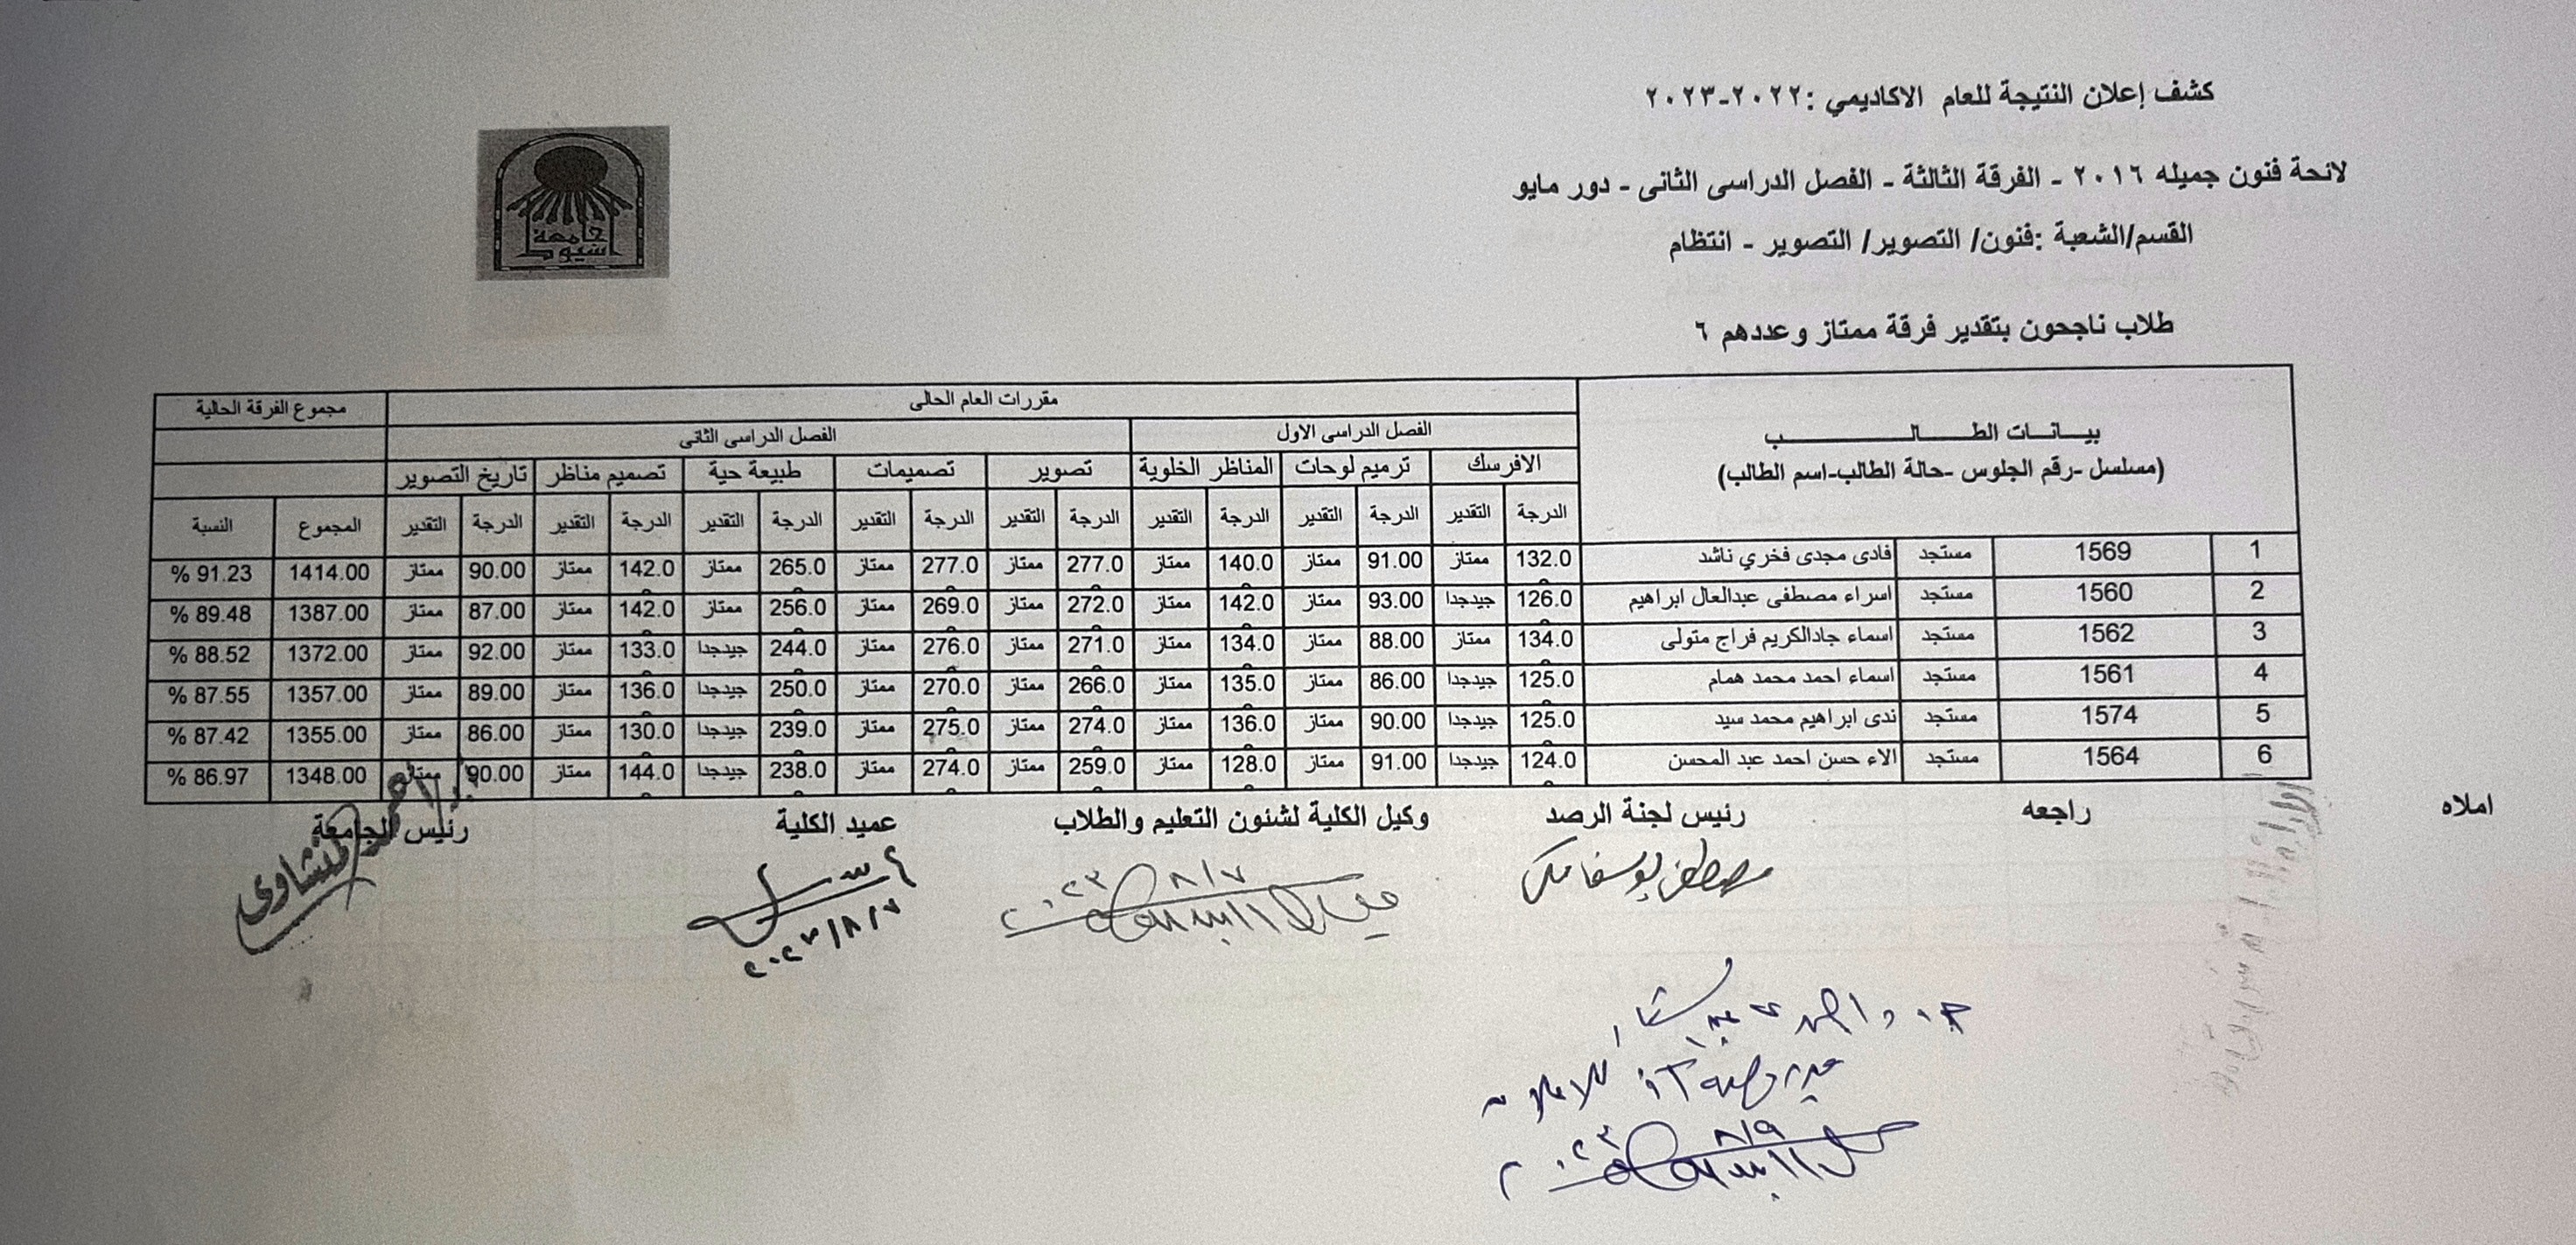 كشف إعلان النتيجة للعام الاكاديمي :٢٠٢٢-٢٠٢٣
لائحة فنون جميله ٢٠١٦ - الفرقة الثالثة - الفصل الدراسى الثانى - دور مايو
القسم/الشعبة :فنون/ التصوير/ التصوير - انتظام
جامعة
اسيوط
طلاب ناجحون بتقدير فرقة ممتاز وعددهم ٦
بيـــانـــات الطـــــالـــــــــــب مقررات العام الحالى مجموع الفرقة الحالية
(مسلسل -رقم الجلوس -حالة الطالب-اسم الطالب) الفصل الدراسى الاول الفصل الدراسى الثانى
الافرسك ترميم لوحات المناظر الخلوية تصوير تصميمات طبيعة حية تصميم مناظر تاريخ التصوير
الدرجة التقدير الدرجة التقدير الدرجة التقدير الدرجة التقدير الدرجة التقدير الدرجة التقدير الدرجة التقدير الدرجة التقدير المجموع النسبة
1 1569 مستجد فادى مجدى فخري ناشد 132.0 ممتاز 91.00 ممتاز 140.0 ممتاز 277.0 ممتاز 277.0 ممتاز 265.0 ممتاز 142.0 ممتاز 90.00 ممتاز 1414.00 91.23 %
2 1560 مستجد اسراء مصطفى عبدالعال ابراهيم 126.0 جيدجدا 93.00 ممتاز 142.0 ممتاز 272.0 ممتاز 269.0 ممتاز 256.0 ممتاز 142.0 ممتاز 87.00 ممتاز 1387.00 89.48 %
3 1562 مستجد اسماء جادالكريم فراج متولى 134.0 ممتاز 88.00 ممتاز 134.0 ممتاز 271.0 ممتاز 276.0 ممتاز 244.0 جيدجدا 133.0 ممتاز 92.00 ممتاز 1372.00 88.52 %
4 1561 مستجد اسماء احمد محمد همام 125.0 جيدجدا 86.00 ممتاز 135.0 ممتاز 266.0 ممتاز 270.0 ممتاز 250.0 جيدجدا 136.0 ممتاز 89.00 ممتاز 1357.00 87.55 %
5 1574 مستجد ندى ابراهيم محمد سيد 125.0 جيدجدا 90.00 ممتاز 136.0 ممتاز 274.0 ممتاز 275.0 ممتاز 239.0 جيدجدا 130.0 ممتاز 86.00 ممتاز 1355.00 87.42 %
6 1564 مستجد الاء حسن احمد عبد المحسن 124.0 جيدجدا 91.00 ممتاز 128.0 ممتاز 259.0 ممتاز 274.0 ممتاز 238.0 جيدجدا 144.0 ممتاز 90.00 ممتاز 1348.00 86.97 %
املاه راجعه رئيس لجنة الرصد وكيل الكلية لشئون التعليم والطلاب عميد الكلية رئيس الجامعة
مصطفى يوسف ٨/٧ ٢٠٢٣ ٢٠٢٣/٨/٧ أحمد المنشاوى
٨/٩ ٢٠٢٣